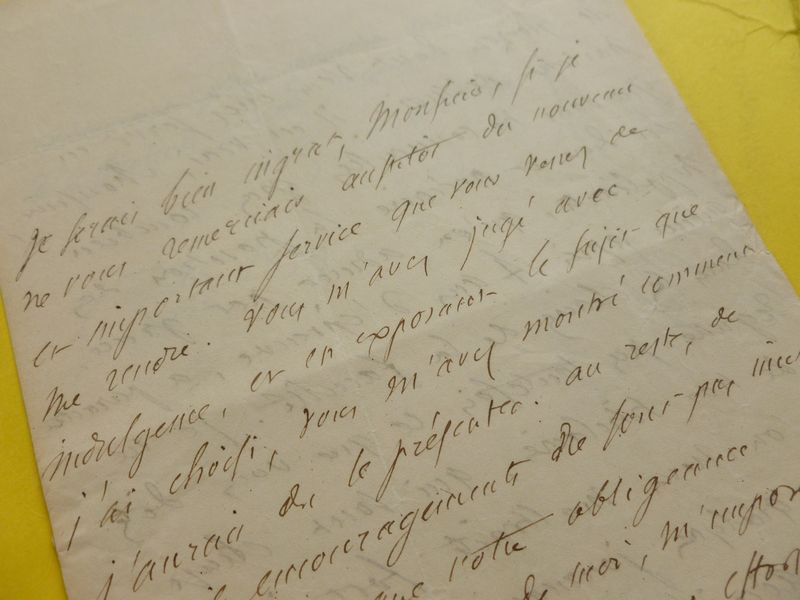 Je serais bien ingrat, Monsieur, si je
ne vous remerciais aussitôt du nouveau
et important service que vous venez de
me rendre. Vous m'avez jugé avec
indulgence, et en exposant le sujet que
j'ai choisi, vous m'avez montré comment
j'aurais du le présenter. au reste, de
encouragements ne sont pas
que votre obligeance
de moi, m'impor
effort